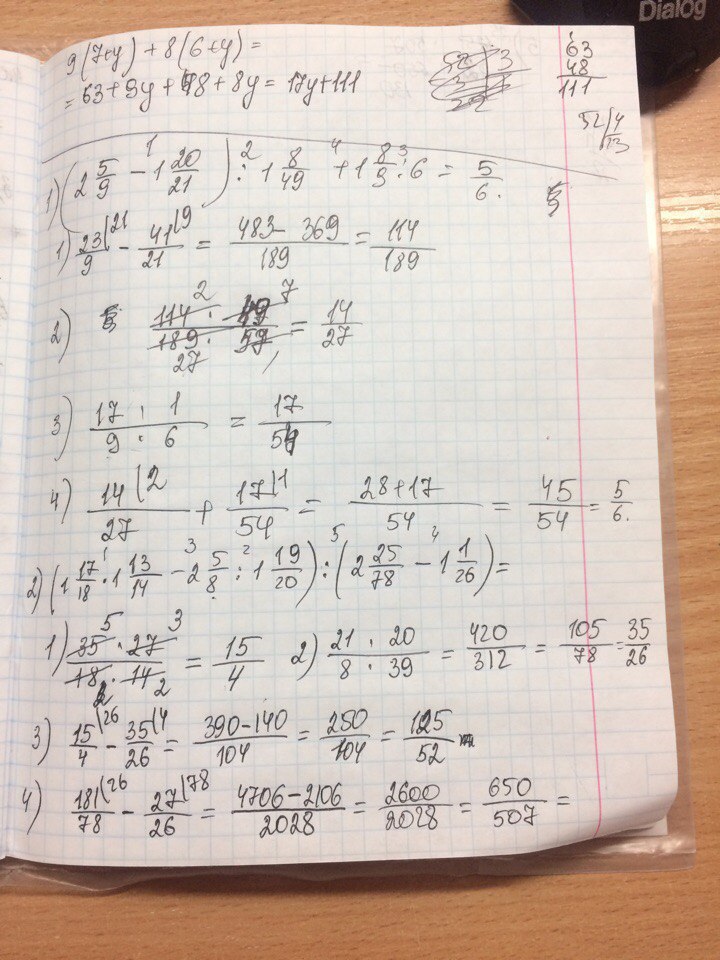 Dialog
9(7+y)+8(6+y)=
=63+9y+48+8y=17y+111
63
48
111
52 4
13
1) (2 5/9 - 1 20/21) : 1 8/49 + 1 8/9 : 6 = 5/6.
1) 23/9 - 41/21 = (483-369)/189 = 114/189
2) (114 · 49)/(189 · 57) = 14/27
3) (17 · 1)/(9 · 6) = 17/54
4) 14/27 + 17/54 = (28+17)/54 = 45/54 = 5/6.
2) (1 17/18 · 1 13/14 - 2 5/8 : 1 19/20) : (2 25/78 - 1 1/26) =
1) (35 · 27)/(18 · 14) = 15/4 2) (21 · 20)/(8 · 39) = 420/312 = 105/78 = 35/26
3) 15/4 - 35/26 = (390-140)/104 = 250/104 = 125/52
4) 181/78 - 27/26 = (4706-2106)/2028 = 2600/2028 = 650/507 =